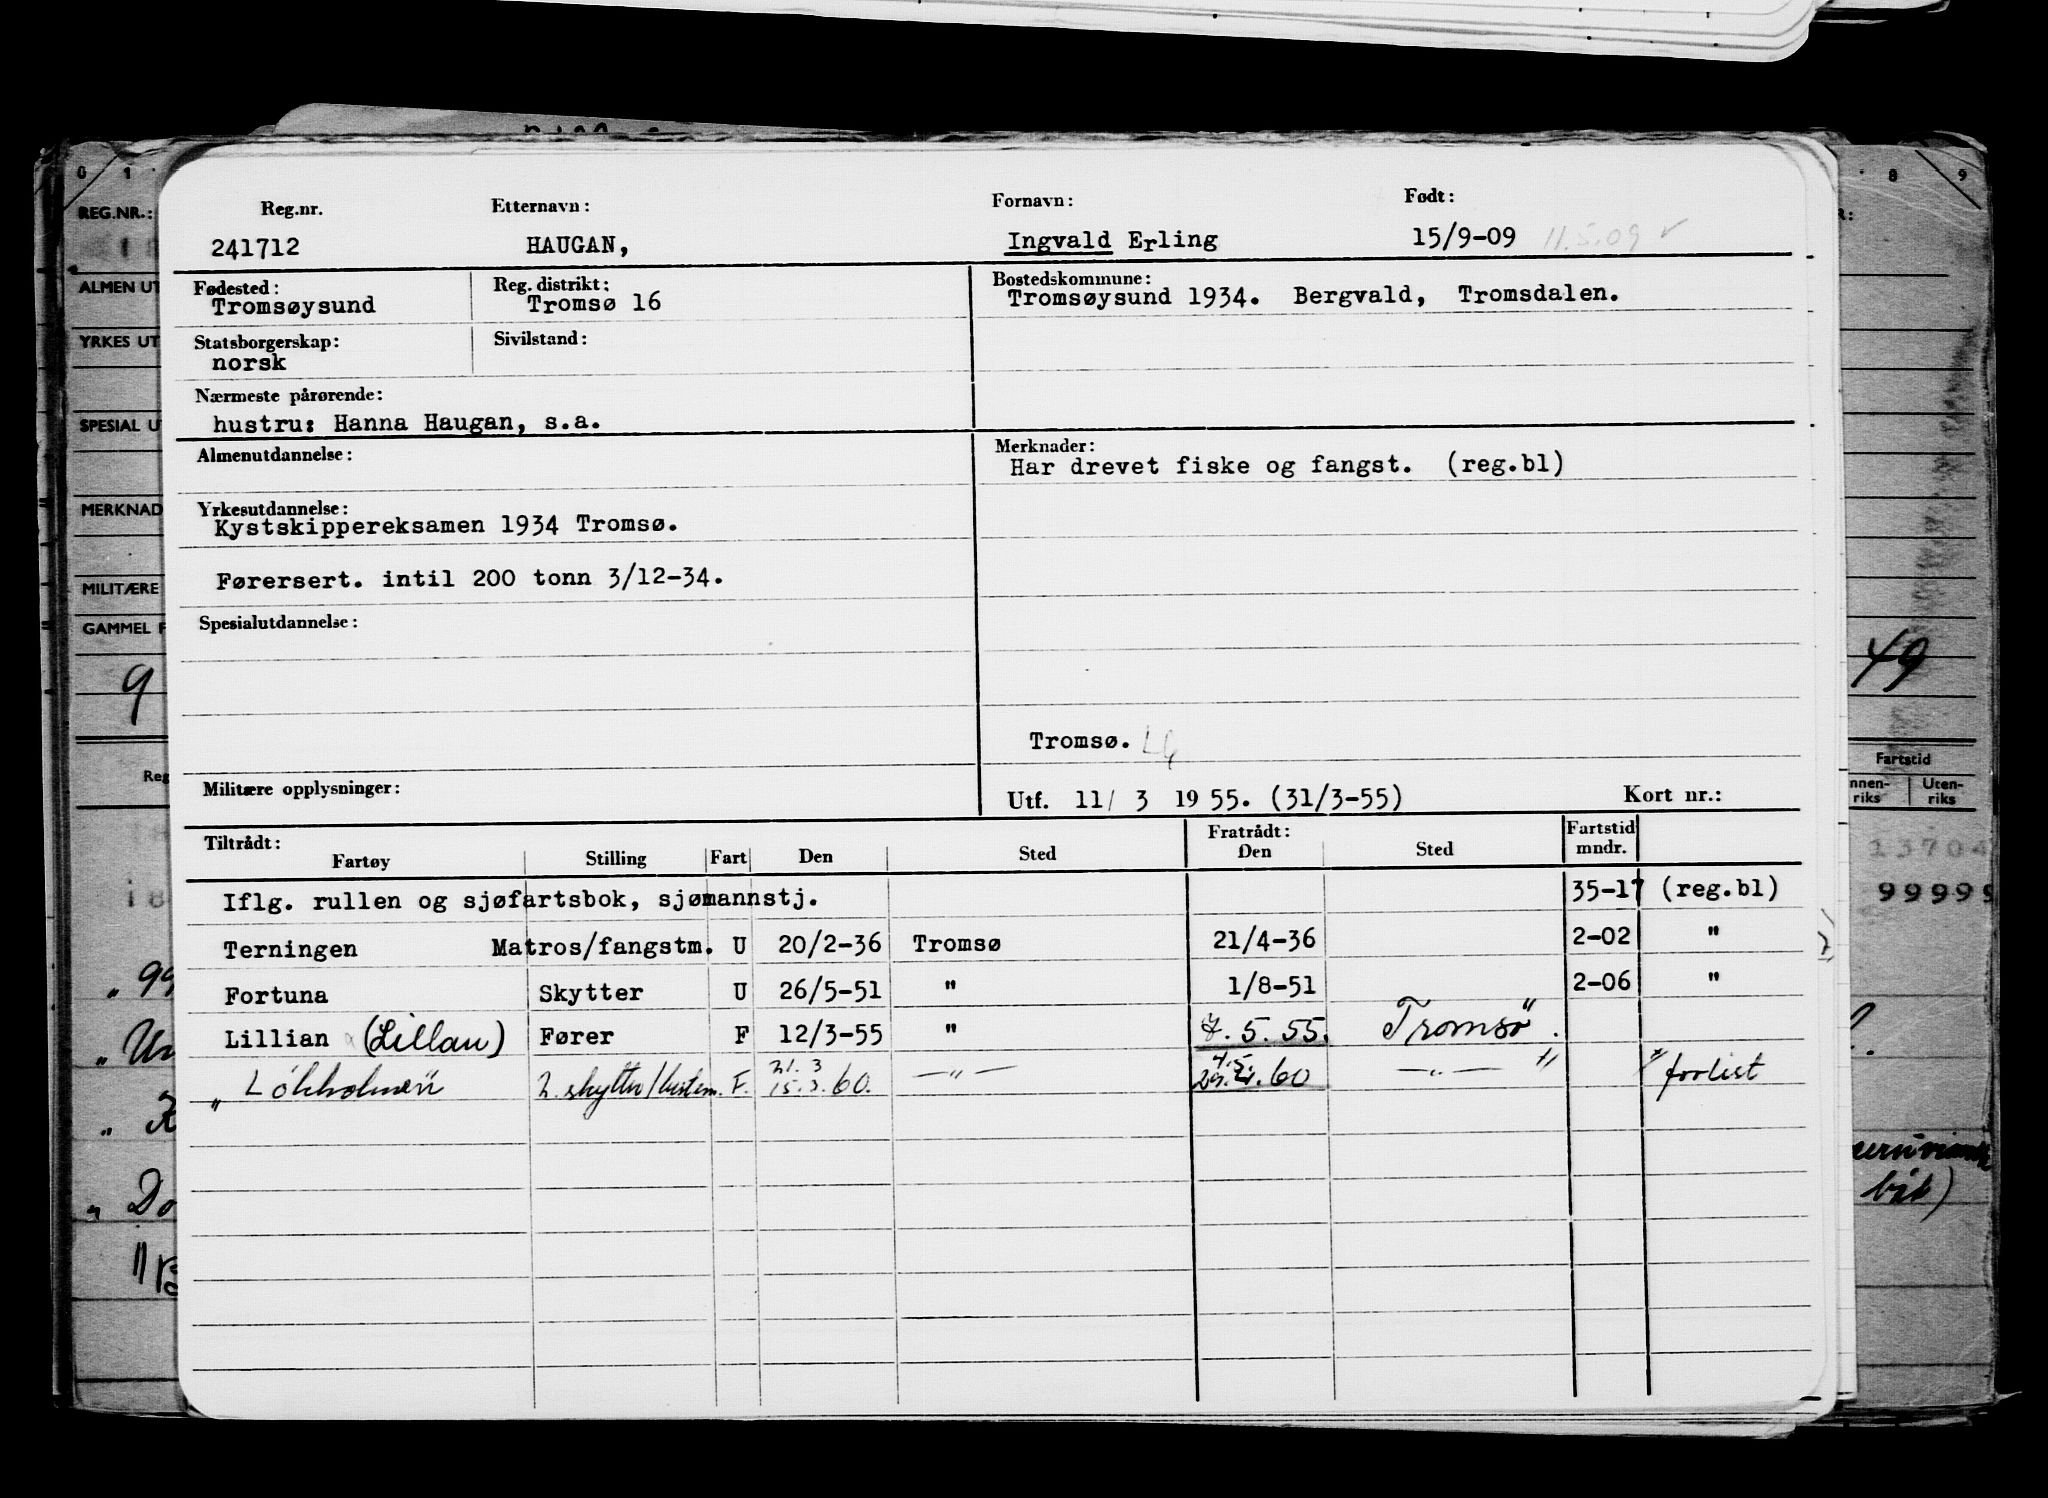 Reg.nr. Etternavn: Fornavn: Født:
241712 HAUGAN, Ingvald Erling 15/9-09 11.5.09
Fødested: Reg. distrikt: Bostedskommune:
Tromsøysund Tromsø 16 Tromsøysund 1934. Bergvald, Tromsdalen.
Statsborgerskap: Sivilstand:
norsk
Nærmeste pårørende:
hustru: Hanna Haugan, s.a.
Almenutdannelse: Merknader:
Har drevet fiske og fangst. (reg.bl)
Yrkesutdannelse:
Kystskippereksamen 1934 Tromsø.
Førersert. intil 200 tonn 3/12-34.
Spesialutdannelse:
Tromsø.
Militære opplysninger: Utf. 11/ 3 1955. (31/3-55) Kort nr.:
Tiltrådt: Fratrådt: Fartstid
Fartøy Stilling Fart Den Sted Den Sted mndr.
Iflg. rullen og sjøfartsbok, sjømannstj. 35-17 (reg.bl)
Terningen Matros/fangstm. U 20/2-36 Tromsø 21/4-36 2-02 "
Fortuna Skytter U 26/5-51 " 1/8-51 2-06 "
Lillian (Lillan) Fører F 12/3-55 " 7.5.55. Tromsø
21.3 4.5.
" Lökholmen" 2. skytter/bestem. F. 15.3.60. —"— .60 —"— " forlist
0 1 8 9
REG.NR.:
ALMEN UT
YRKES UT
SPESIAL U
MERKNAD
MILITÆRE
GAMMEL F
9 49
Reg Fartstid
nnen-riks Uten-riks
13704
99999
"99
"Do